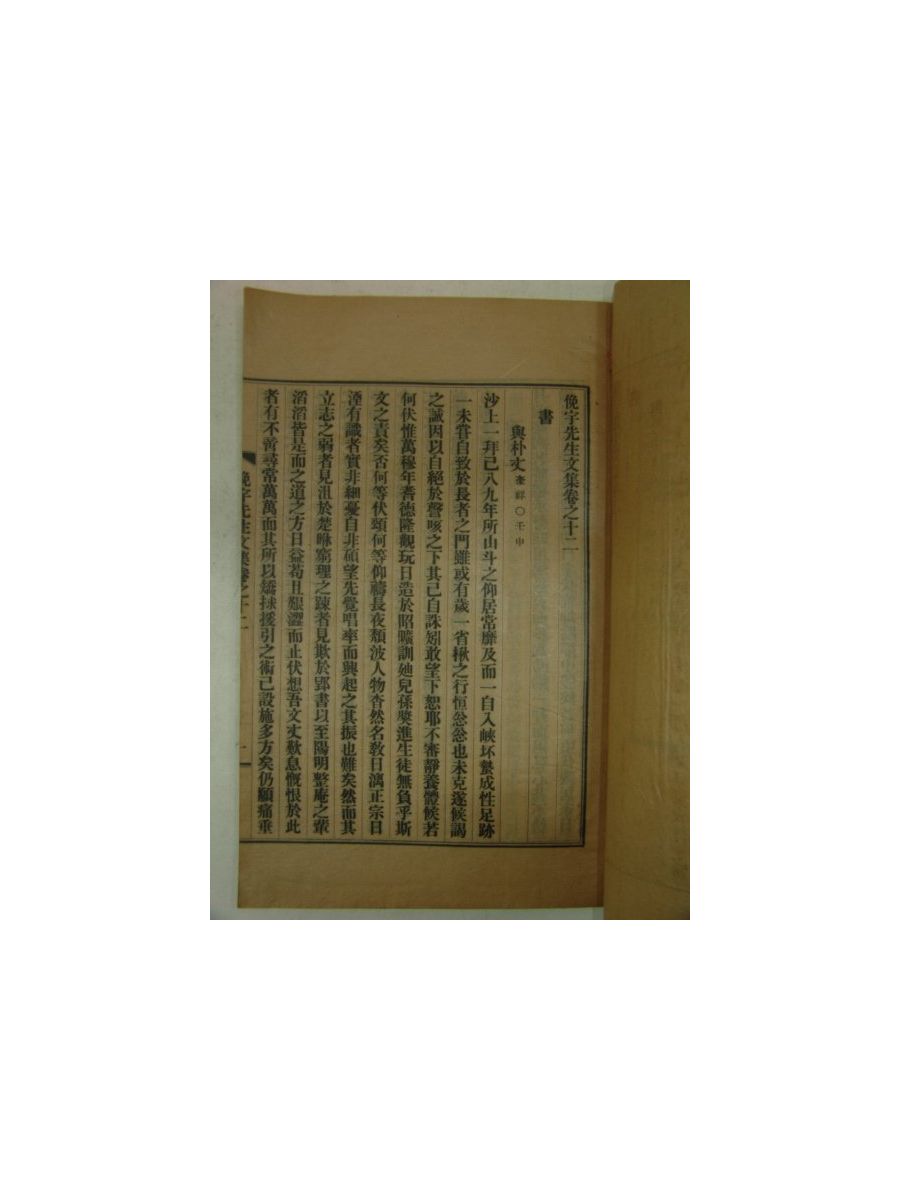 俛宇先生文集卷之十二
書
與朴丈 奎祥○壬申
沙上一拜已八九年所山斗之仰居常靡及而一自入峽坏蟄成性足跡
一未甞自致於長者之門雖或有歲一省楸之行恒忩忩也未克遂候謁
之誠因以自絕於謦咳之下其已自誅矧敢望下恕耶不審靜養體候若
何伏惟萬穆年耆德隆觀玩日造於昭曠訓廸兒孫獎進生徒無負乎斯
文之責矣否何等伏頌何等仰禱長夜頹波人物杳然名敎日漓正宗日
湮有識者實非細憂自非碩望先覺唱率而興起之其振也難矣然而其
立志之弱者見沮於楚咻窮理之踈者見欺於郢書以至陽明整庵之輩
滔滔皆是而之道之方日益苟且艱澀而止伏想吾文丈歎息慨恨於此
者有不啻尋常萬萬而其所以矯捄援引之術已設施多方矣仍願痛垂
俛宇先生文集卷之十二 一